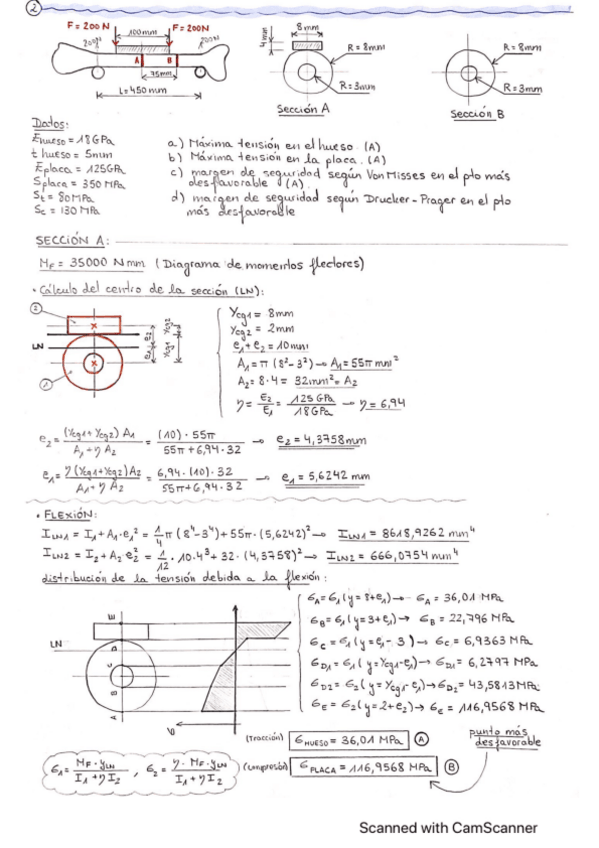 2
F = 200N F = 200N
200N 100mm 200N
A B
75mm
L = 450mm
8mm
4mm
R = 8mm
R = 3mm
Sección A
R = 8mm
R = 3mm
Sección B
Datos:
Ehueso = 18GPa
t hueso = 5mm
Eplaca = 125GPa
Splaca = 350 MPa
St = 80MPa
Sc = 130MPa
a) Máxima tensión en el hueso. (A)
b) Máxima tensión en la placa. (A)
c) margen de seguridad según Von Misses en el pto más
desfavorable (A).
d) margen de seguridad según Drucker-Prager en el pto
más desfavorable
SECCIÓN A:
MF = 35000 Nmm (Diagrama de momentos flectores)
• Cálculo del centro de la sección (LN):
2
LN
1
e1 e2
Ycg1 Ycg2
Ycg1 = 8mm
Ycg2 = 2mm
e1 + e2 = 10mm
A1 = π (8² - 3²) → A1 = 55π mm²
A2 = 8·4 = 32mm² = A2
η = E2/E1 = 125 GPa/18GPa → η = 6,94
e2 = (Ycg1 + Ycg2) A1 / A1 + η A2 = (10) · 55π / 55π + 6,94 · 32 → e2 = 4,3758mm
e1 = η (Ycg1 + Ycg2) A2 / A1 + η A2 = 6,94 · (10) · 32 / 55π + 6,94 · 32 → e1 = 5,6242 mm
• FLEXIÓN:
ILN1 = I1 + A1·e1² = 1/4 π (8⁴ - 3⁴) + 55π · (5,6242)² → ILN1 = 8618,9262 mm⁴
ILN2 = I2 + A2·e2² = 1/12 · 10·4³ + 32 · (4,3758)² → ILN2 = 666,0754 mm⁴
distribución de la tensión debida a la flexión:
E
LN
D
C
B
A
σ
σA = σ1 (y = 8 + e1) → σA = 36,01 MPa
σB = σ1 (y = 3 + e1) → σB = 22,796 MPa
σC = σ1 (y = e1 - 3) → σC = 6,9363 MPa
σD1 = σ1 (y = Ycg1 - e1) → σD1 = 6,2797 MPa
σD2 = σ2 (y = Ycg1 - e1) → σD2 = 43,5813 MPa
σE = σ2 (y = 2 + e2) → σE = 116,9568 MPa
(Tracción) σHUESO = 36,01 MPa A
punto más
desfavorable
σ1 = MF · yLN / I1 + η I2 , σ2 = η · MF · yLN / I1 + η I2
(compresión) σPLACA = 116,9568 MPa B
Scanned with CamScanner